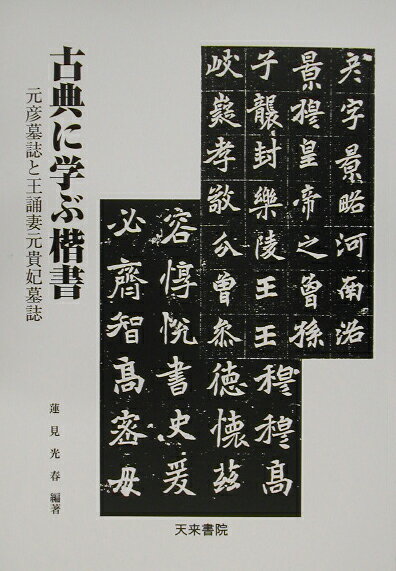 古典に学ぶ楷書
元彦墓誌と王誦妻元貴妃墓誌
蓮見光春 編著
彦字景略河南洛
景穆皇帝之曾孫
子襲封樂陵王王穆穆高
岐嶷孝敬公曾參德懷茲
容惇悅書史爰
必齊智高密毋
天来書院